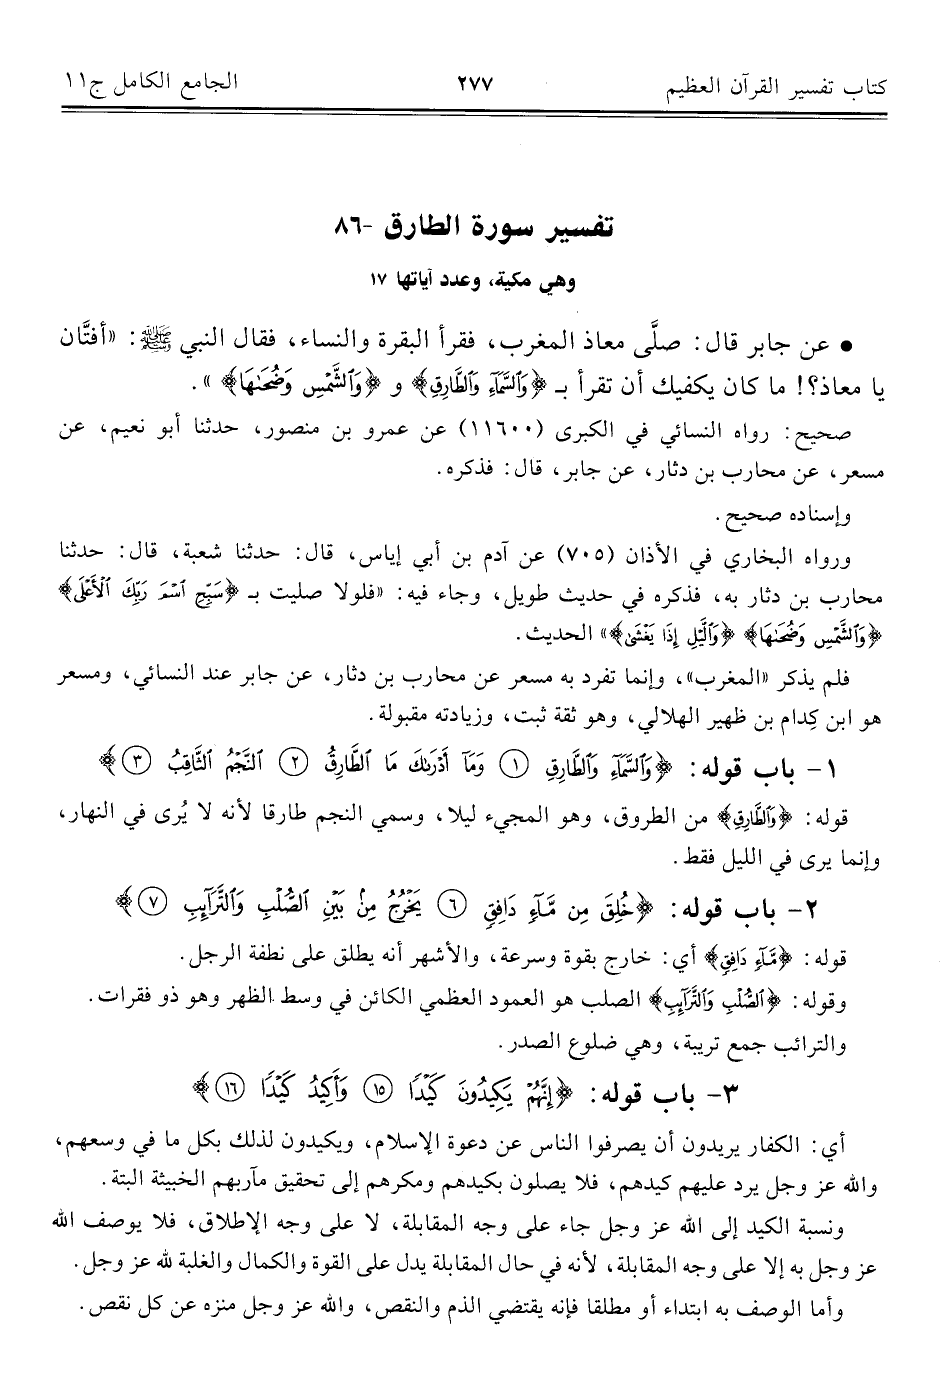 كتاب تفسير القرآن العظيم ٢٧٧ الجامع الكامل ج١١
تفسير سورة الطارق -٨٦
وهي مكية، وعدد آياتها ١٧
• عن جابر قال: صلَّى معاذ المغرب، فقرأ البقرة والنساء، فقال النبي ﷺ: «أفتَّان
يا معاذ؟! ما كان يكفيك أن تقرأ بـ ﴿وَٱلسَّمَآءِ وَٱلطَّارِقِ﴾ و ﴿وَٱلشَّمْسِ وَضُحَىٰهَا﴾ ».
صحيح: رواه النسائي في الكبرى (١١٦٠٠) عن عمرو بن منصور، حدثنا أبو نعيم، عن
مسعر، عن محارب بن دثار، عن جابر، قال: فذكره.
وإسناده صحيح.
ورواه البخاري في الأذان (٧٠٥) عن آدم بن أبي إياس، قال: حدثنا شعبة، قال: حدثنا
محارب بن دثار به، فذكره في حديث طويل، وجاء فيه: «فلولا صليت بـ ﴿سَبِّحِ ٱسْمَ رَبِّكَ ٱلْأَعْلَى﴾
﴿وَٱلشَّمْسِ وَضُحَىٰهَا﴾ ﴿وَٱلَّيْلِ إِذَا يَغْشَىٰ﴾» الحديث.
فلم يذكر «المغرب»، وإنما تفرد به مسعر عن محارب بن دثار، عن جابر عند النسائي، ومسعر
هو ابن كِدام بن ظهير الهلالي، وهو ثقة ثبت، وزيادته مقبولة.
١- باب قوله: ﴿وَٱلسَّمَآءِ وَٱلطَّارِقِ ١ وَمَآ أَدْرَىٰكَ مَا ٱلطَّارِقُ ٢ ٱلنَّجْمُ ٱلثَّاقِبُ ٣﴾
قوله: ﴿وَٱلطَّارِقِ﴾ من الطروق، وهو المجيء ليلا، وسمي النجم طارقا لأنه لا يُرى في النهار،
وإنما يرى في الليل فقط.
٢- باب قوله: ﴿خُلِقَ مِن مَّآءٍ دَافِقٍ ٦ يَخْرُجُ مِنۢ بَيْنِ ٱلصُّلْبِ وَٱلتَّرَآئِبِ ٧﴾
قوله: ﴿مَّآءٍ دَافِقٍ﴾ أي: خارج بقوة وسرعة، والأشهر أنه يطلق على نطفة الرجل.
وقوله: ﴿ٱلصُّلْبِ وَٱلتَّرَآئِبِ﴾ الصلب هو العمود العظمي الكائن في وسط الظهر وهو ذو فقرات.
والترائب جمع تريبة، وهي ضلوع الصدر.
٣- باب قوله: ﴿إِنَّهُمْ يَكِيدُونَ كَيْدًا ١٥ وَأَكِيدُ كَيْدًا ١٦﴾
أي: الكفار يريدون أن يصرفوا الناس عن دعوة الإسلام، ويكيدون لذلك بكل ما في وسعهم،
والله عز وجل يرد عليهم كيدهم، فلا يصلون بكيدهم ومكرهم إلى تحقيق مآربهم الخبيثة البتة.
ونسبة الكيد إلى الله عز وجل جاء على وجه المقابلة، لا على وجه الإطلاق، فلا يوصف الله
عز وجل به إلا على وجه المقابلة، لأنه في حال المقابلة يدل على القوة والكمال والغلبة لله عز وجل.
وأما الوصف به ابتداء أو مطلقا فإنه يقتضي الذم والنقص، والله عز وجل منزه عن كل نقص.